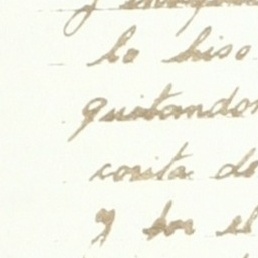 y
lo hiso
quitando
corita de
y por el